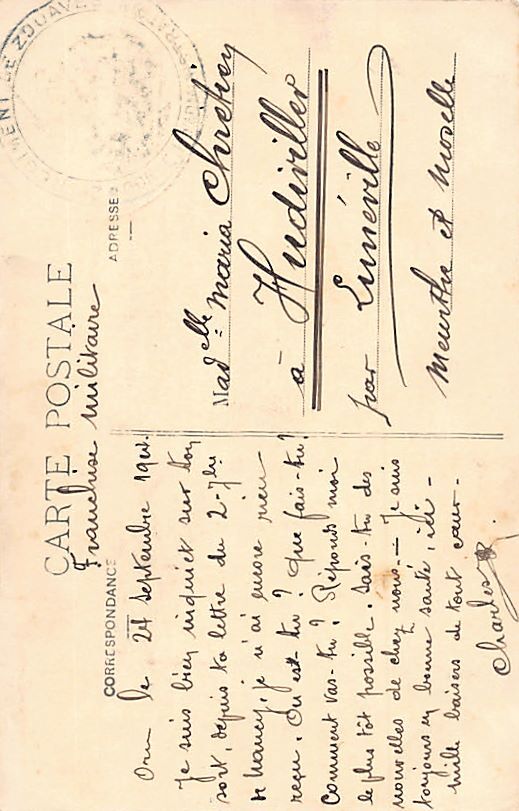 CARTE POSTALE
Franchise militaire
CORRESPONDANCE
ADRESSE
le 24 Septembre 1914.
Je suis bien inquiet sur ton
sort, depuis ta lettre du 2-7bre
de Nancy, je n'ai encore rien
reçu. Ou est-tu? Que fais-tu?
Comment vas-tu? Réponds moi
le plus tôt possible. Sais-tu des
nouvelles de chez nous. - Je suis
toujours en bonne santé, ici -
mille baisers de tout cœur -
Charles
Madelle Maria Chretien
à Hudiviller
par Lunéville
Meurthe et Moselle
RÉGIMENT DE ZOUAVES